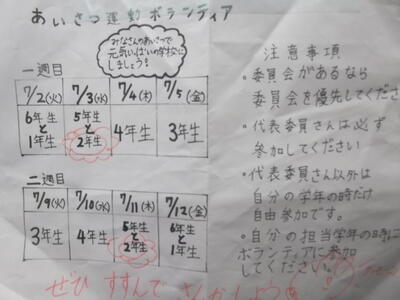 あいさつ運動ボランティア
みなさんのあいさつで
元気いっぱいの学校に
しましょう!
一週目
7/2(火) 7/3(水) 7/4(木) 7/5(金)
6年生と1年生 5年生と2年生 4年生 3年生
二週目
7/9(火) 7/10(水) 7/11(木) 7/12(金)
3年生 4年生 5年生と2年生 6年生と1年生
注意事項
・委員会があるなら
委員会を優先してくださ
・代表委員さんは必ず
参加してください
・代表委員さん以外は
自分の学年の時だけ
自由参加です。
・自分の担当学年の時に
ボランティアに参加
してください。
ぜひすすんで